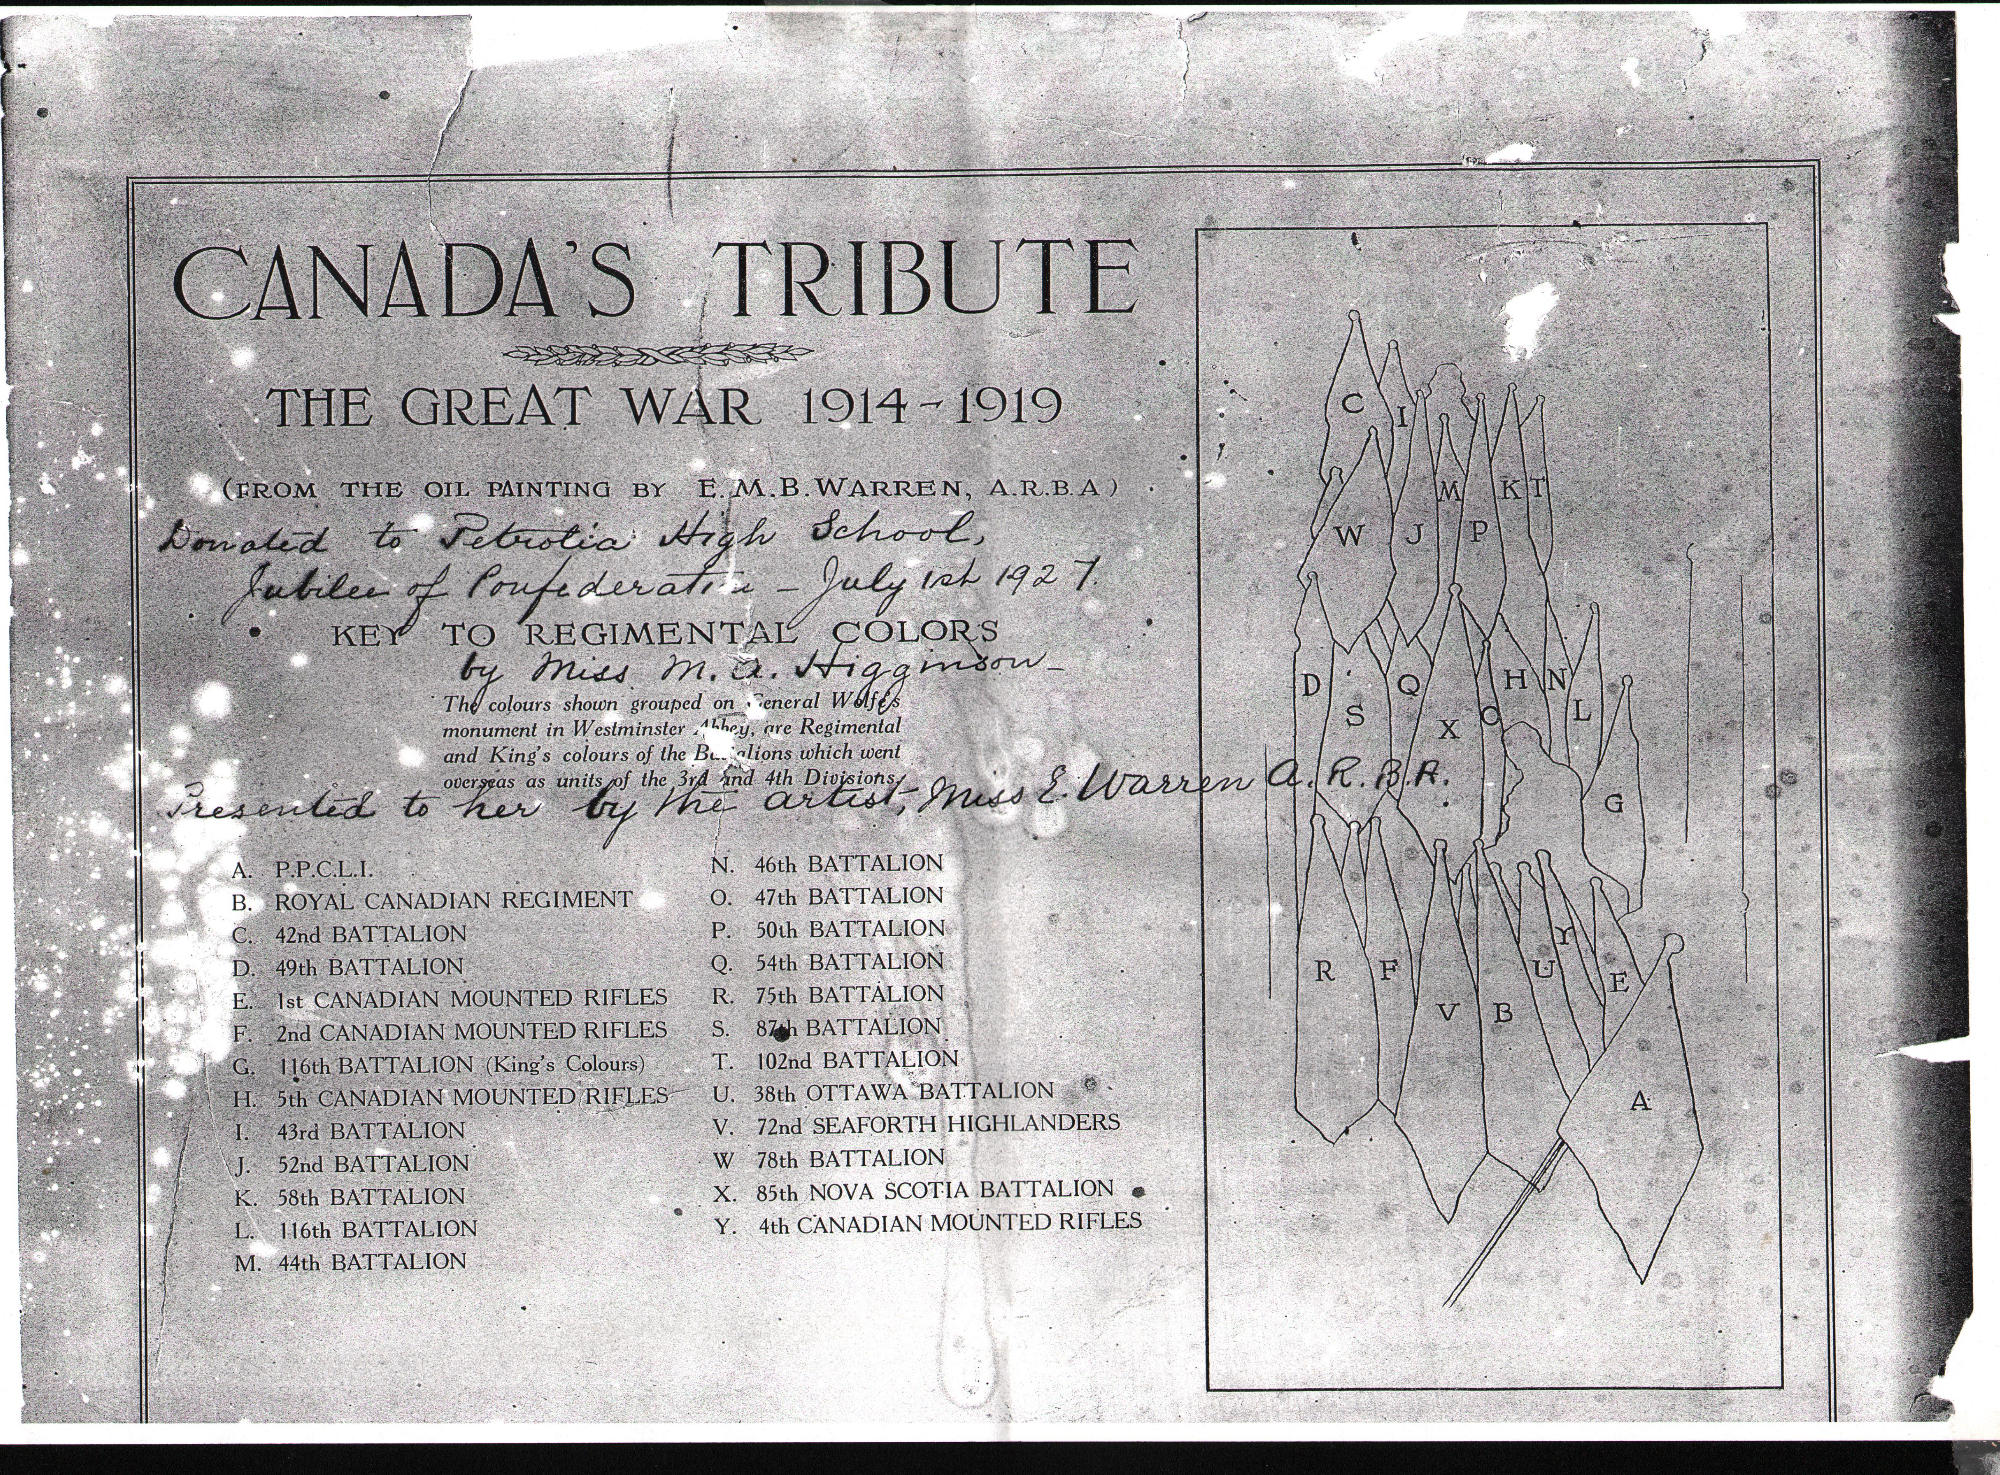 CANADA'S TRIBUTE
THE GREAT WAR 1914-1919
(FROM THE OIL PAINTING BY E.M.B. WARREN, A.R.B.A)
Donated to Petrolia High School,
Jubilee of Confederation - July 1st 1927.
KEY TO REGIMENTAL COLORS
by Miss M. A. Higginson-
The colours shown grouped on General Wolfe's
monument in Westminster Abbey, are Regimental
and King's colours of the Battalions which went
overseas as units of the 3rd and 4th Divisions.
Presented to her by the artist, Miss E. Warren A.R.B.A.
A. P.P.C.L.I.
B. ROYAL CANADIAN REGIMENT
C. 42nd BATTALION
D. 49th BATTALION
E. 1st CANADIAN MOUNTED RIFLES
F. 2nd CANADIAN MOUNTED RIFLES
G. 116th BATTALION (King's Colours)
H. 5th CANADIAN MOUNTED RIFLES
I. 43rd BATTALION
J. 52nd BATTALION
K. 58th BATTALION
L. 116th BATTALION
M. 44th BATTALION
N. 46th BATTALION
O. 47th BATTALION
P. 50th BATTALION
Q. 54th BATTALION
R. 75th BATTALION
S. 87th BATTALION
T. 102nd BATTALION
U. 38th OTTAWA BATTALION
V. 72nd SEAFORTH HIGHLANDERS
W 78th BATTALION
X. 85th NOVA SCOTIA BATTALION
Y. 4th CANADIAN MOUNTED RIFLES
C I
M K T
W J P
D S Q X O H N L
G
R F V B U Y E
A